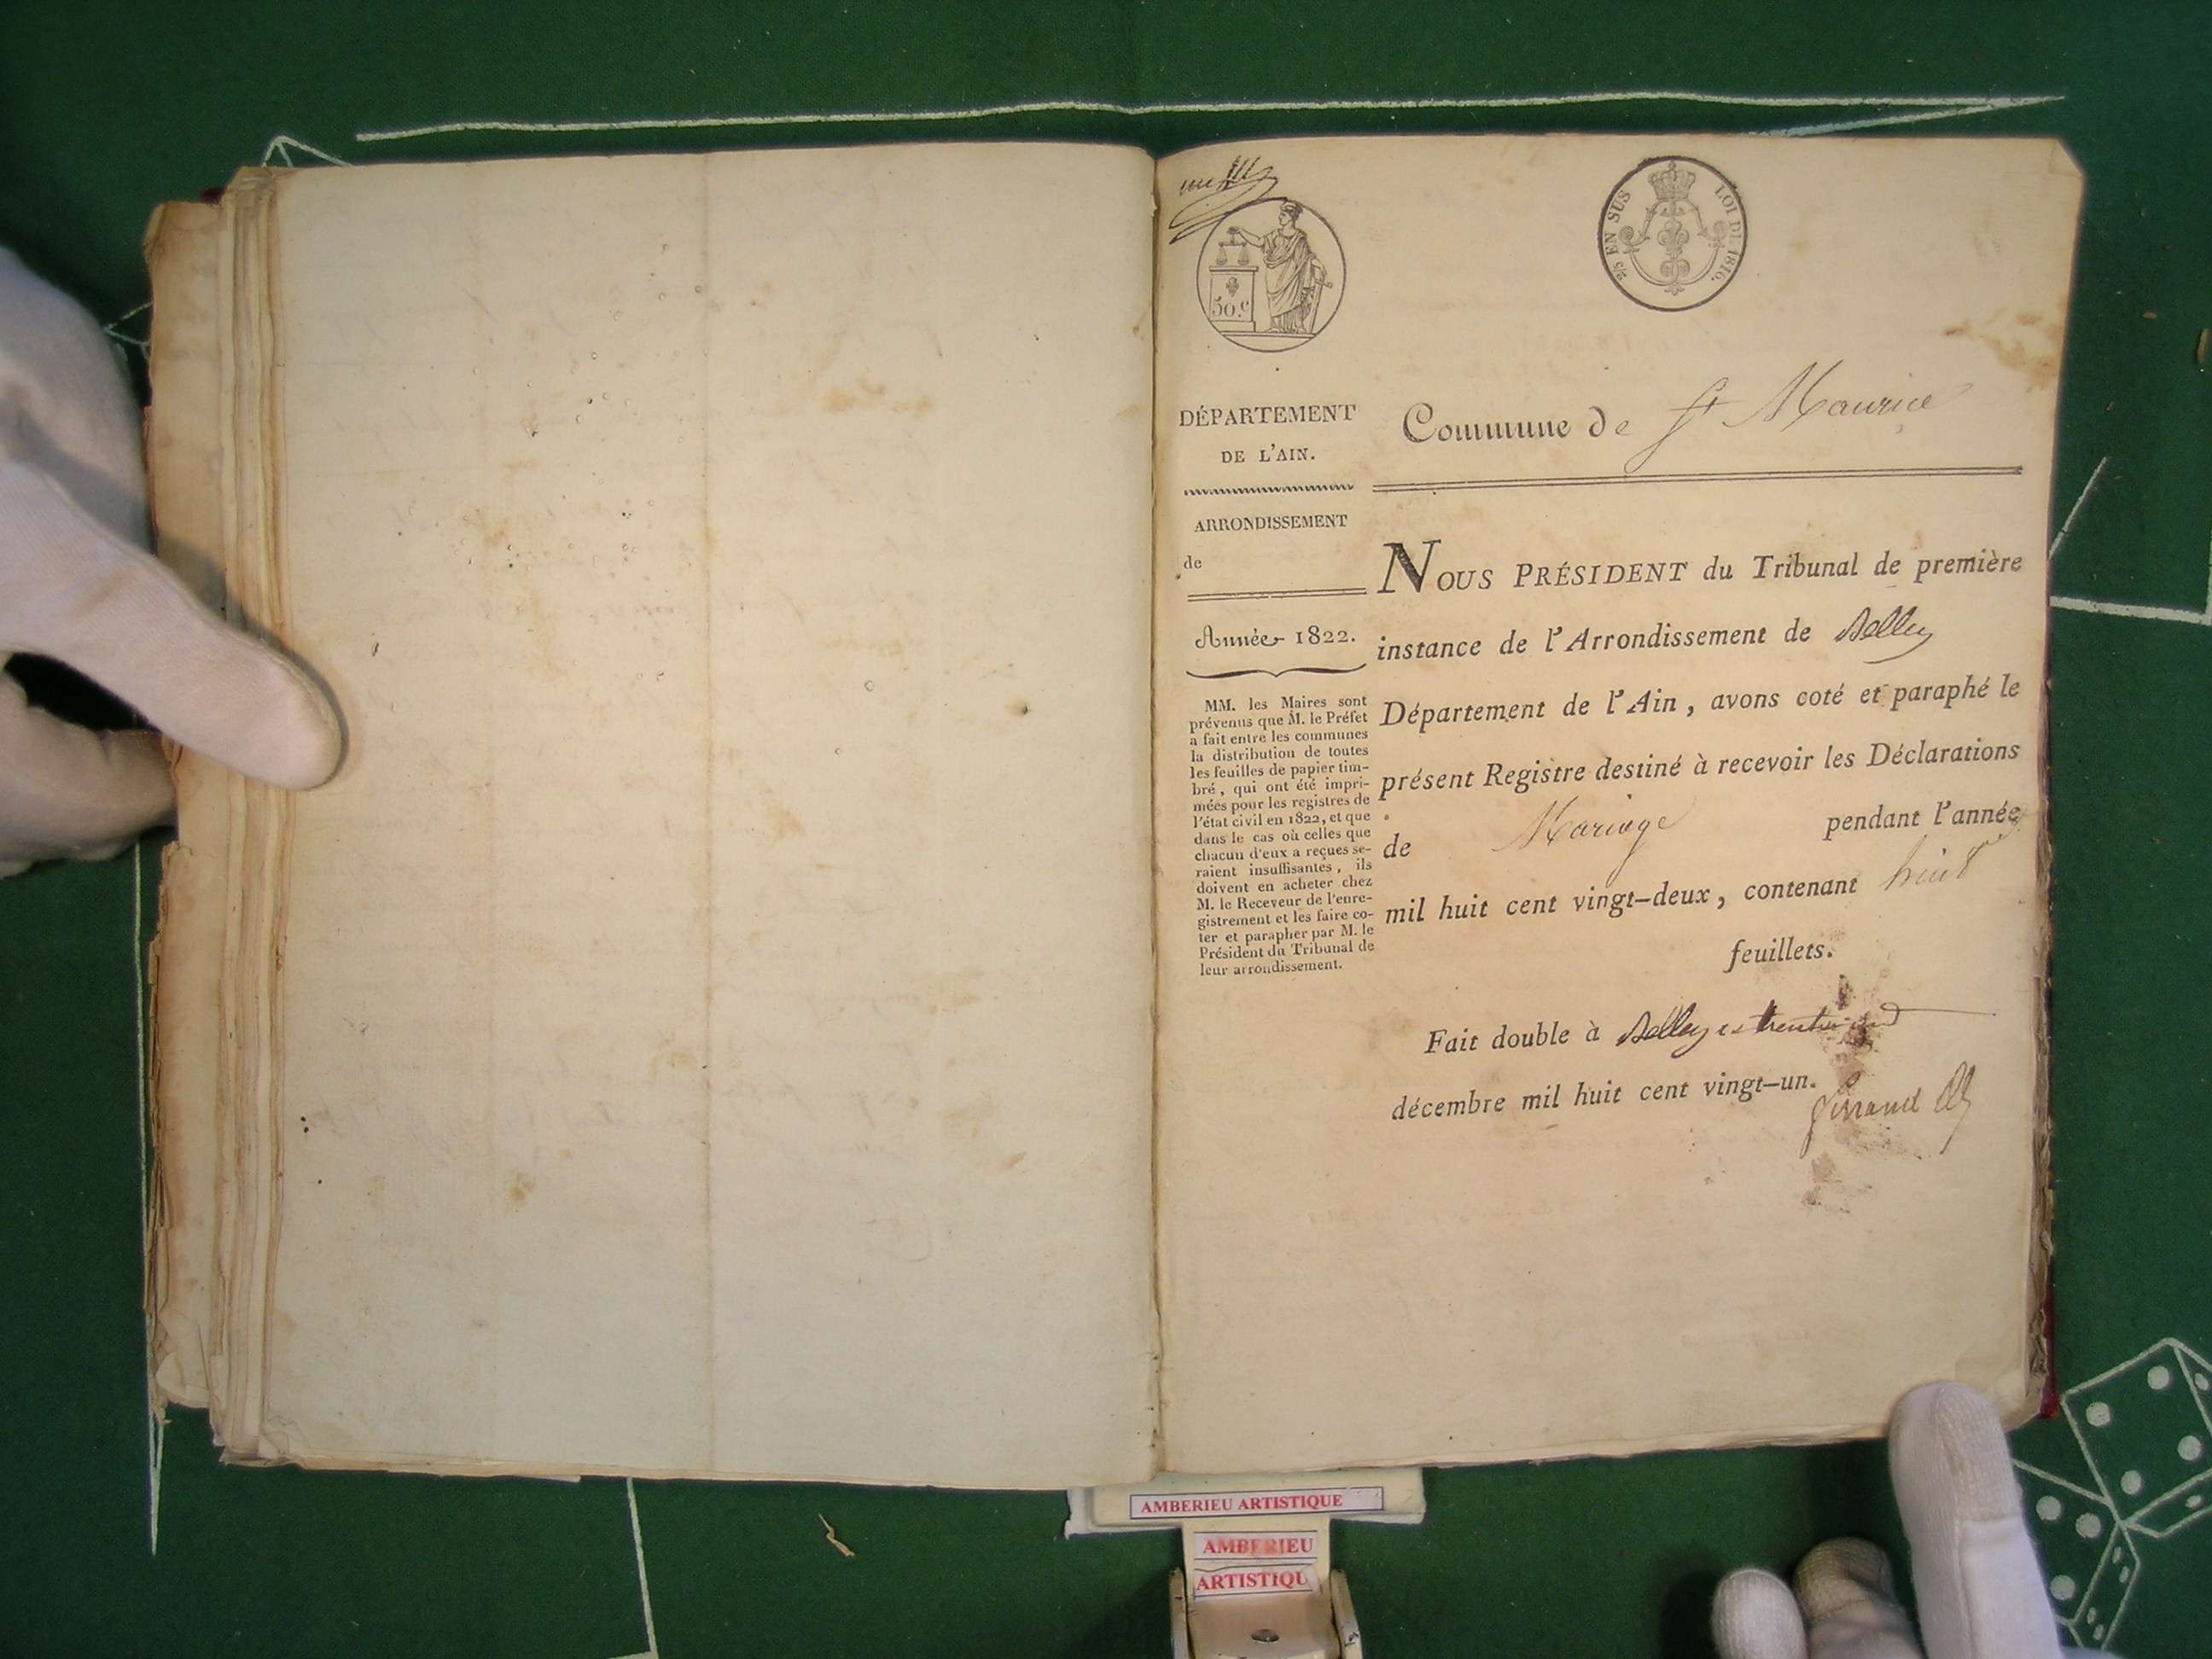 50.c
2/5 EN SUS LOI DE 1816.
DÉPARTEMENT
DE L'AIN.
ARRONDISSEMENT
de
Année 1822.
MM. les Maires sont
prévenus que M. le Préfet
a fait entre les communes
la distribution de toutes
les feuilles de papier tim-
bré, qui ont été impri-
mées pour les registres de
l'état civil en 1822, et que
dans le cas où celles que
chacun d'eux a reçues se-
raient insuffisantes, ils
doivent en acheter chez
M. le Receveur de l'enre-
gistrement et les faire co-
ter et parapher par M. le
Président du Tribunal de
leur arrondissement.
Commune de St Maurice
NOUS PRÉSIDENT du Tribunal de première
instance de l'Arrondissement de Belley
Département de l'Ain, avons coté et paraphé le
présent Registre destiné à recevoir les Déclarations
de Mariage pendant l'année
mil huit cent vingt-deux, contenant huit
feuillets.
Fait double à Belley
décembre mil huit cent vingt-un.
AMBERIEU ARTISTIQUE
AMBERIEU
ARTISTIQU